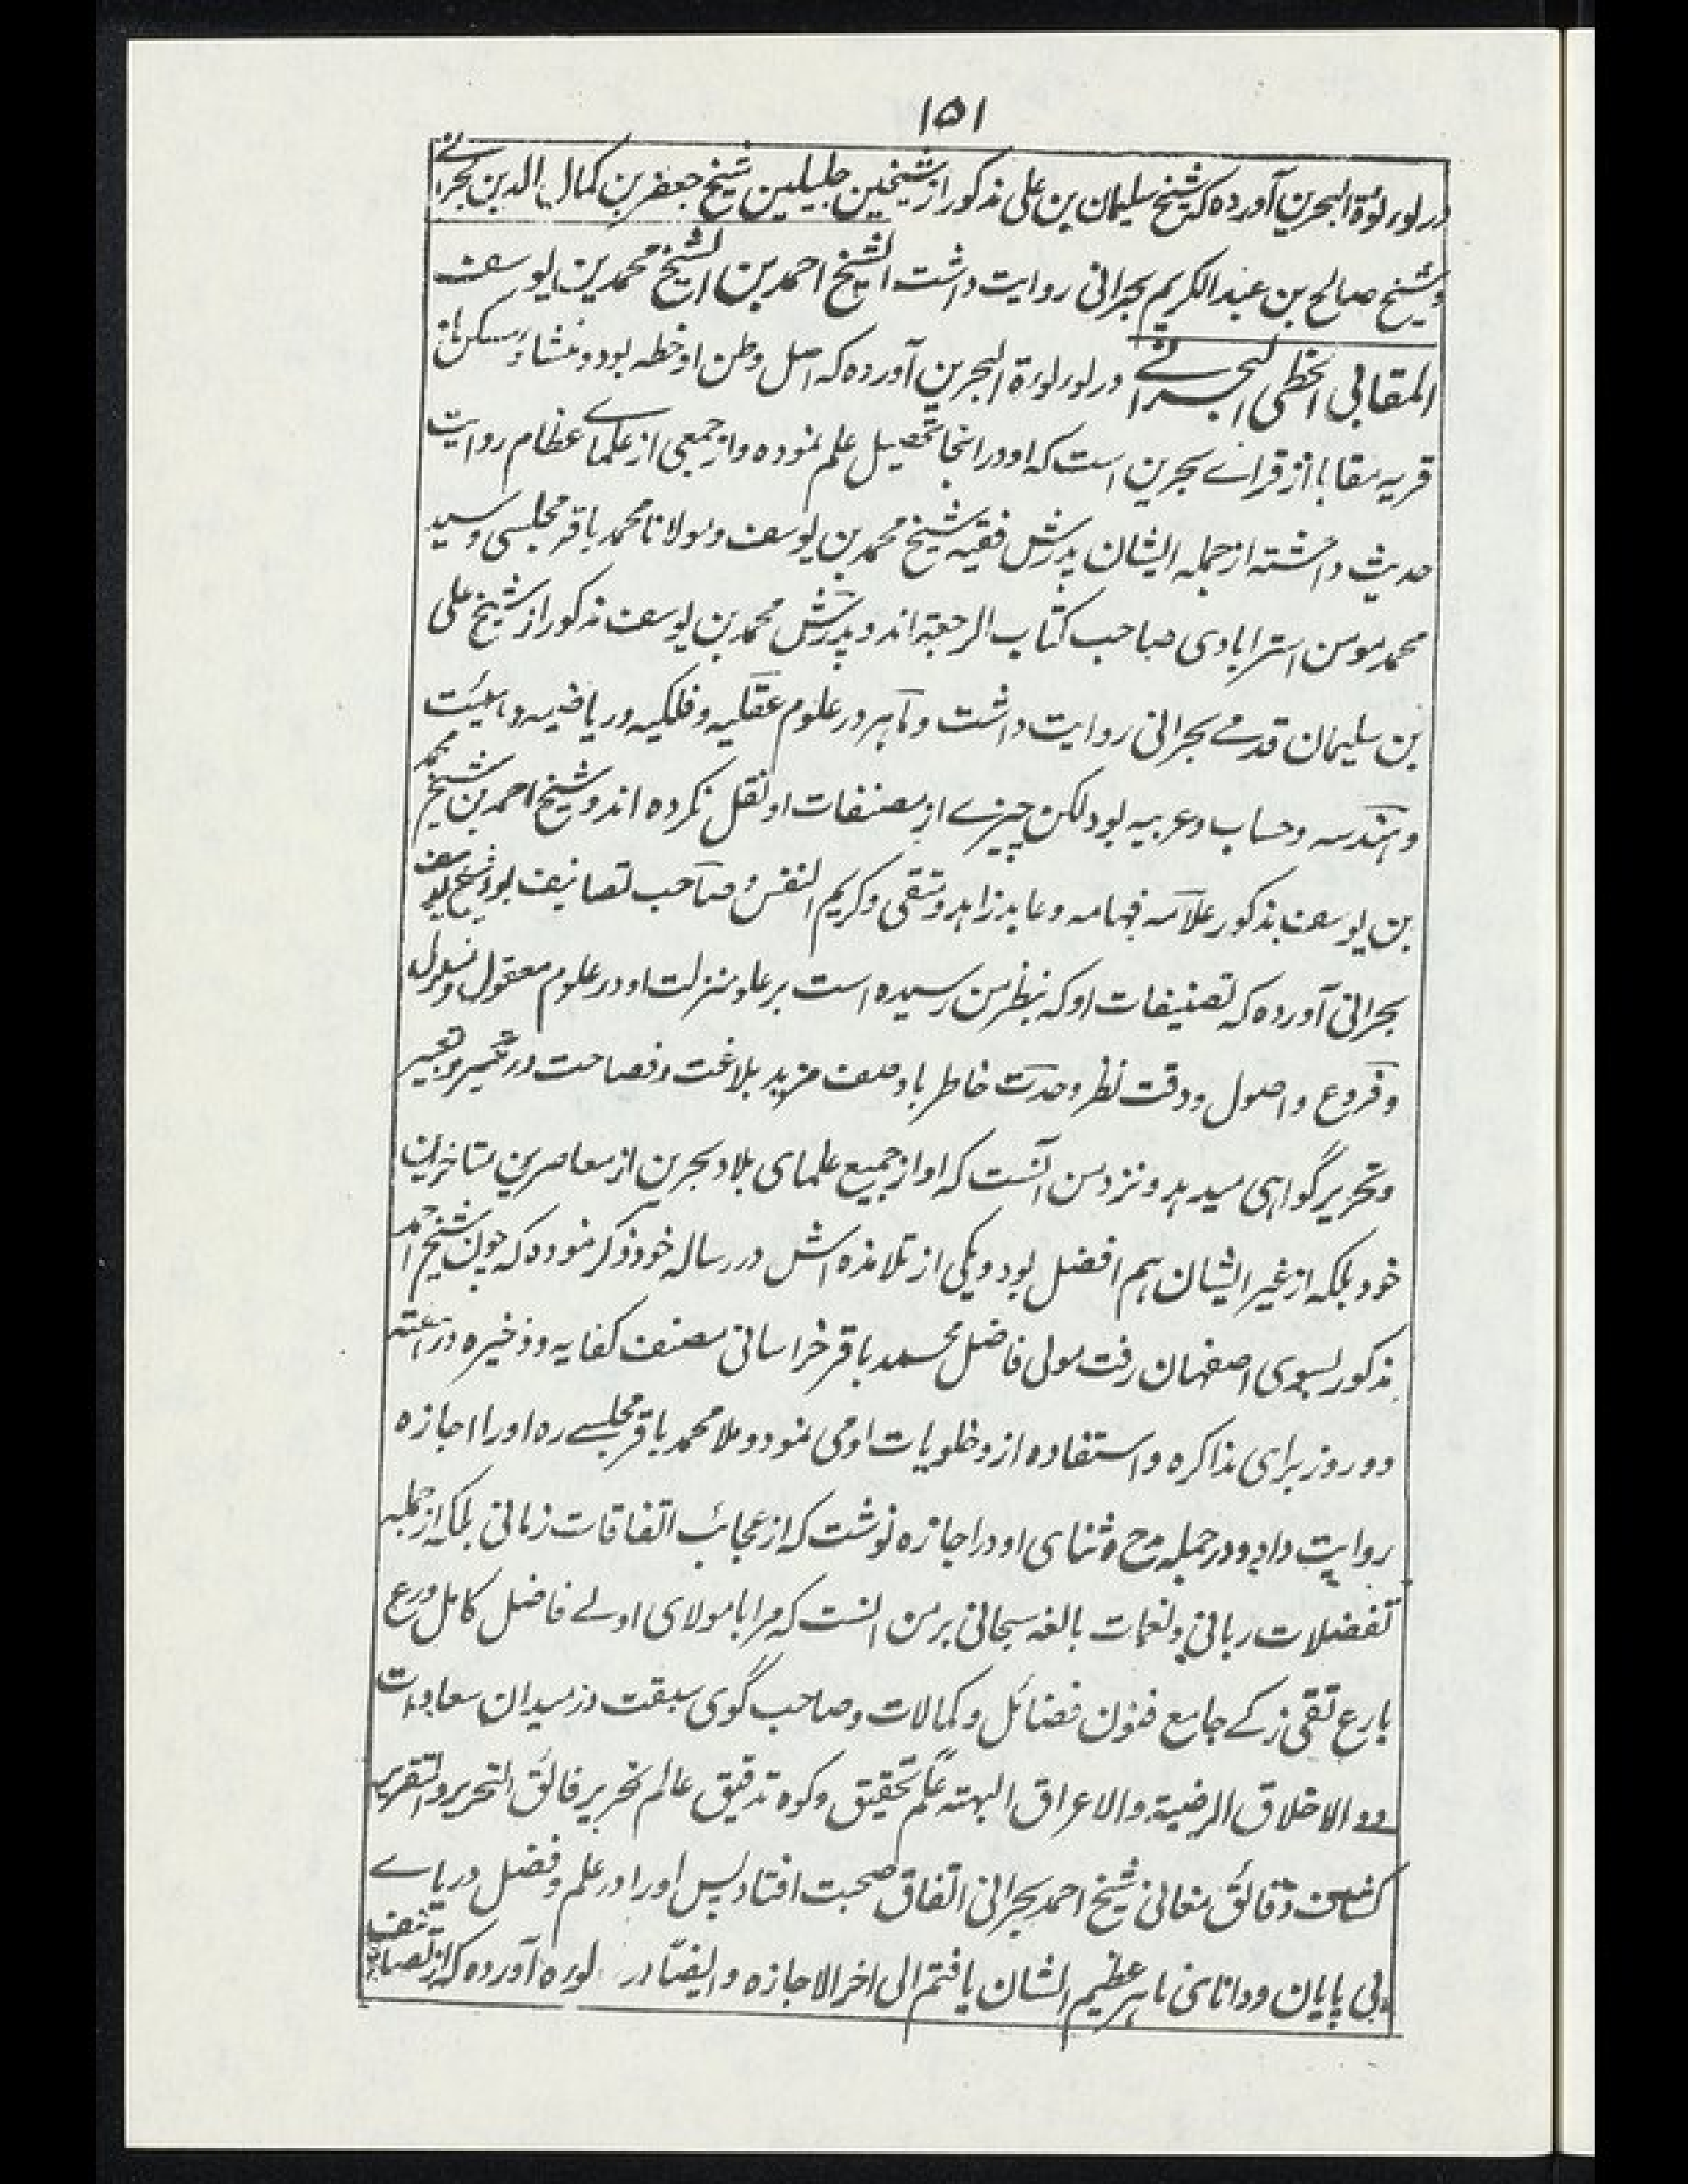 ۱۵۱
در لوءلوءة البحرین آورده که شیخ سلیمان بن علی مذکور از شیخین جلیلین شیخ جعفر بن کمال الدین بحرانے
و شیخ صالح بن عبد الکریم بحرانی روایت داشت الشیخ احمد بن الشیخ محمد بن یوسف
المقابی الخطی البحرانے در لوءلوءة البحرین آورده که اصل وطن او خطه بود و منشاء و مسکن او
قریه مقابا از قراے بحرین است که او در انجا تحصیل علم نموده و از جمعی از علماے عظام روایت
حدیث داشته از جمله ایشان پدرش فقیه شیخ محمد بن یوسف و مولانا محمد باقر مجلسی و سید
محمد مومن استرابادی صاحب کتاب الرجعة اند و پدرش محمد بن یوسف مذکور از شیخ علی
بن سلیمان قدمے بحرانی روایت داشت و ماهر در علوم عقلیه و فلکیه و ریاضیه و هیئت
و هندسه و حساب و عربیه بود لکن چیزے از مصنفات او نقل نکرده اند و شیخ احمد بن شیخ محمد
بن یوسف مذکور علامه فهامه و عابد زاهد و متقی و کریم النفس و صاحب تصانیف بود شیخ یوسف
بحرانی آورده که تصنیفات او که بنظر من رسیده است بر علو منزلت او در علوم معقول و منقول
و فروع و اصول و دقت نظر و حدت خاطر با وصف مزید بلاغت و فصاحت در تعبیر
و تحریر گواهی میدهد و نزد من آنست که او از جمیع علمای بلاد بحرین از معاصرین متاخرین
خود بلکه از غیر ایشان هم افضل بود و یکی از تلامذه اش در رساله خود ذکر نموده که چون شیخ احمد
مذکور بسوی اصفهان رفت مولی فاضل محمد باقر خراسانی مصنف کفایه و ذخیره در هفته
دو روز برای مذاکره و استفاده از و خلویات او می نمود و ملا محمد باقر مجلسے ره او را اجازه
روایت داد و در جمله مدح و ثنای او در اجازه نوشت که از عجائب اتفاقات زمانی بلکه از جمله
تفضلات ربانی و نعمات بالغه سبحانی بر من انست که مرا با مولای اولے فاضل کامل ورع
بارع تقی زکے جامع فنون فضائل و کمالات و صاحب گوی سبقت در میدان سعادات
ذے الاخلاق الرضیة و الاعراق البهیة علم تحقیق و کوه تدقیق عالم نحریر فائق التحریر و التقریر
کشاف دقائق معانی شیخ احمد بحرانی اتفاق صحبت افتاد پس او را در علم و فضل دریاے
بی پایان و دانای ماهر عظیم الشان یافتم الی اخر الاجازه و ایضا در لوءلوءه آورده که از تصانیف